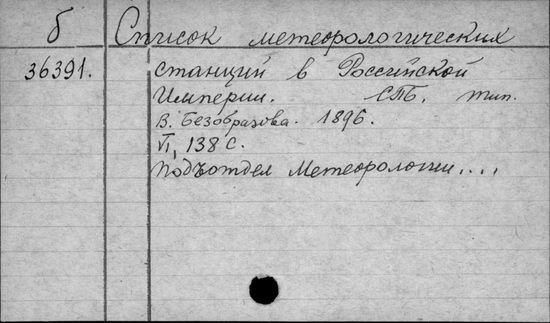 б Список метеорологических
36391. станций в Российской
Империи. СПб. тип.
В. Безобразова. 1896.
VI, 138 с.
Подъотдел Метеорологии....